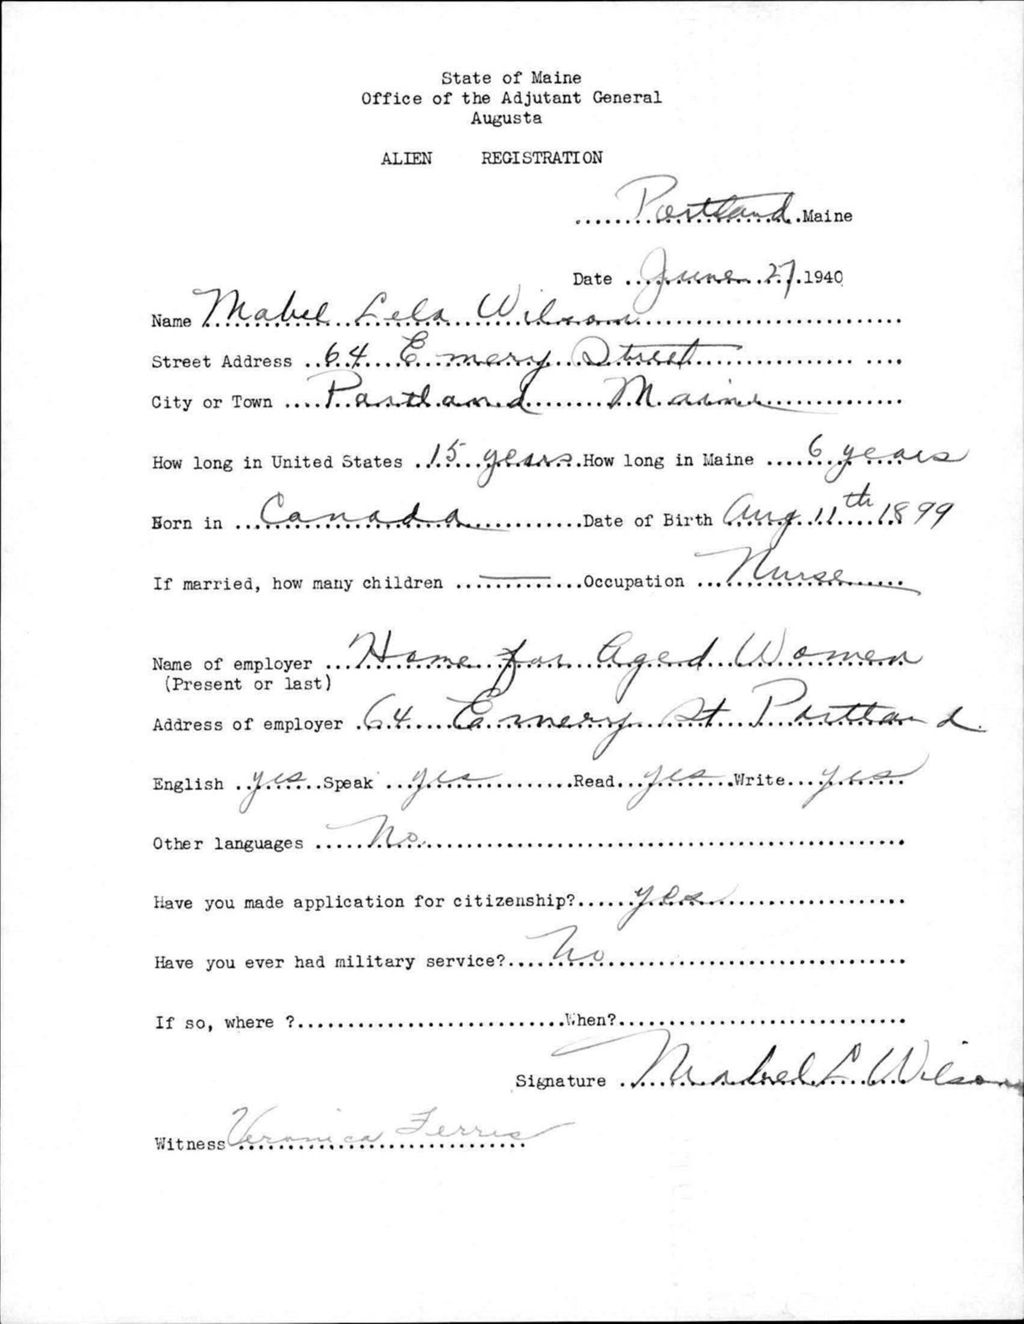 State of Maine
Office of the Adjutant General
Augusta
ALIEN REGISTRATION
Portland Maine
Date June 27 1940
Name Mabel Lela Wilson
Street Address 64 Emery Street
City or Town Portland Maine
How long in United States 15 years How long in Maine 6 years
Born in Canada Date of Birth Aug 11th 1899
If married, how many children —— Occupation Nurse
Name of employer Home for Aged Women
(Present or last)
Address of employer 64 Emery St Portland
English yes Speak yes Read yes Write yes
Other languages No
Have you made application for citizenship? yes
Have you ever had military service? No
If so, where ? When?
Signature Mabel L Wilson
Witness Veronica Ferris